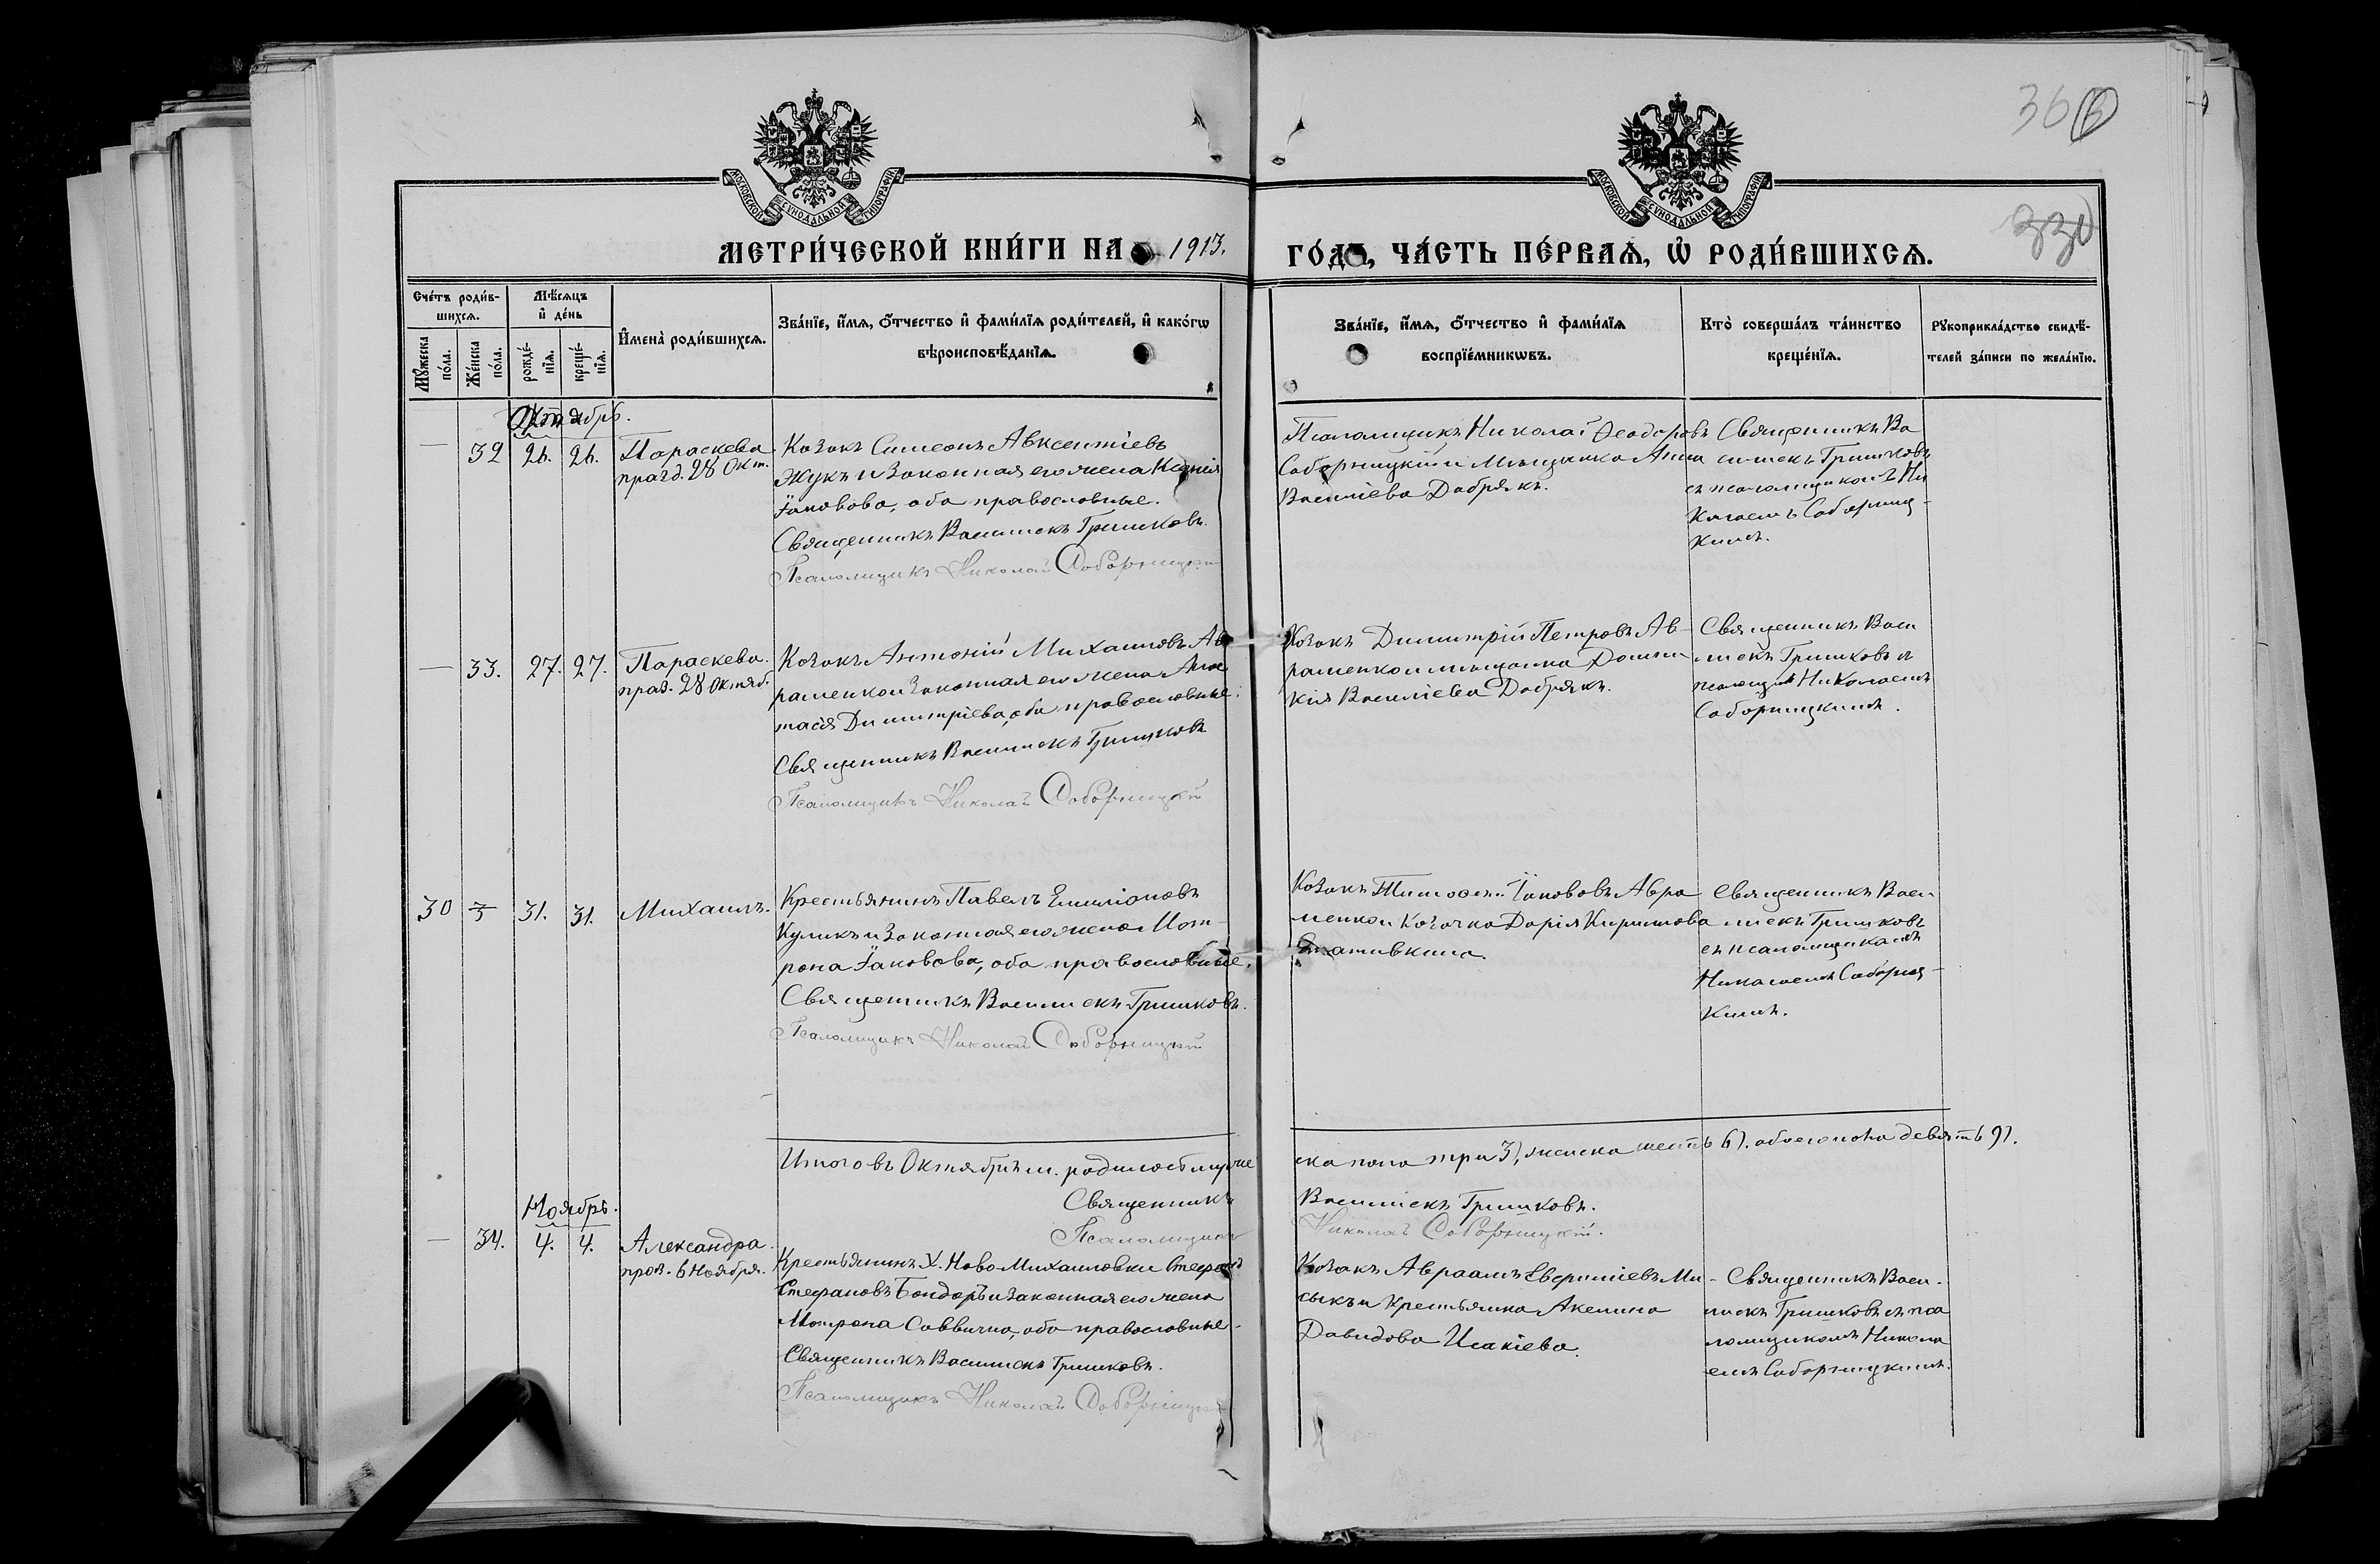 366
330
МОСКОВСКОЙ СѴНОДАЛЬНОЙ ТИПОГРАФІИ
МОСКОВСКОЙ СѴНОДАЛЬНОЙ ТИПОГРАФІИ
МЕТРИ́ЧЕСКОЙ КНИ́ГИ НА 1913.
ГО́ДЪ, ЧА́СТЬ ПЕ́РВАѦ, Ѡ РОДИ́ВШИХСѦ.
Сче́тъ роди́в-
шихсѧ.
Мꙋ́жеска по́ла.
Же́нска по́ла.
Мѣ́сѧцъ
и҆ де́нь
рожде́-
нїѧ.
креще́-
нїѧ.
И҆мена̀ роди́вшихсѧ.
Зва́нїе, и҆́мѧ, ѻ҆́тчество и҆ фами́лїѧ роди́телей, и҆ како́гѡ
вѣроисповѣ́данїѧ.
Зва́нїе, и҆́мѧ, ѻ҆́тчество и҆ фами́лїѧ
воспрїе́мникѡвъ.
Кто̀ соверша́лъ та́инство
креще́нїѧ.
Рꙋкоприкла́дство свидѣ́-
телей за́писи по жела́нїю.
Октябрь.
— 32 26. 26.
Параскева
празд. 28 Окт.
Козакъ Симеонъ Авксентіевъ
Жукъ и законная его жена Ксенія
Іаковова, оба православные.
Священникъ Василискъ Гришковъ.
Псаломщикъ Николай Соборницкій
Псаломщикъ Николай Ѳеодоровъ
Соборницкій и Мѣщанка Анна
Василіева Добрякъ.
Священникъ Ва
силискъ Гришковъ
съ псаломщикомъ Ни
колаемъ Соборниц-
кимъ.
— 33. 27. 27.
Параскева.
праз. 28 Октяб.
Козакъ Антоній Михаиловъ Ав
раменко и законная его жена Анас
тасія Димитріева, оба православные.
Священникъ Василискъ Гришковъ
Псаломщикъ Николай Соборницкій
Козакъ Димитрій Петровъ Ав-
раменко и мѣщанка Домни
кія Василіева Добрякъ.
Священникъ Васи
лискъ Гришковъ съ
псаломщ. Николаемъ
Соборницкимъ.
30 31. 31.
Михаилъ.
Крестьянинъ Павелъ Емиліановъ
Куликъ и законная его жена Мат-
рона Іаковова, оба православные.
Священникъ Василискъ Гришковъ.
Псаломщикъ Николай Соборницкій
Козакъ Тимоѳей Іакововъ Авра
менко и Козачка Дарія Кириллова
Священникъ Васи
лискъ Гришковъ
съ псаломщикомъ
Николаемъ Соборниц-
кимъ.
Итого въ Октябрѣ м. родилось муже
ска пола три 3), женска шесть 6). обоего пола девять 9).
Священникъ
Василискъ Гришковъ.
Псаломщикъ
Николай Соборницкій.
Ноябрь.
— 34. 4. 4.
Александра.
праз. 6 Ноября.
Крестьянинъ х. Ново Михаиловки Стефанъ
Стефановъ Бондарь и законная его жена
Матрона Саввична, оба православные.
Священникъ Василискъ Гришковъ.
Псаломщикъ Николай Соборницкій
Козакъ Авраамъ Ми-
сыкъ и Крестьянка Акелина
Давидова Исакіева.
Священникъ Васи-
лискъ Гришковъ съ пса
ломщикомъ Никола
емъ Соборницкимъ.